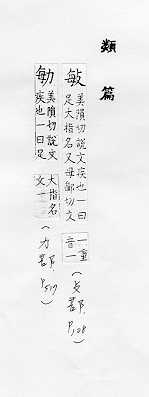 類篇
敏 美隕切說文疾也一曰
足大指名又母鄙切文
一重
音一
(攴部, P.108)
勄 美隕切說文
疾也一曰足
大指名
文一
(力部, P.519)